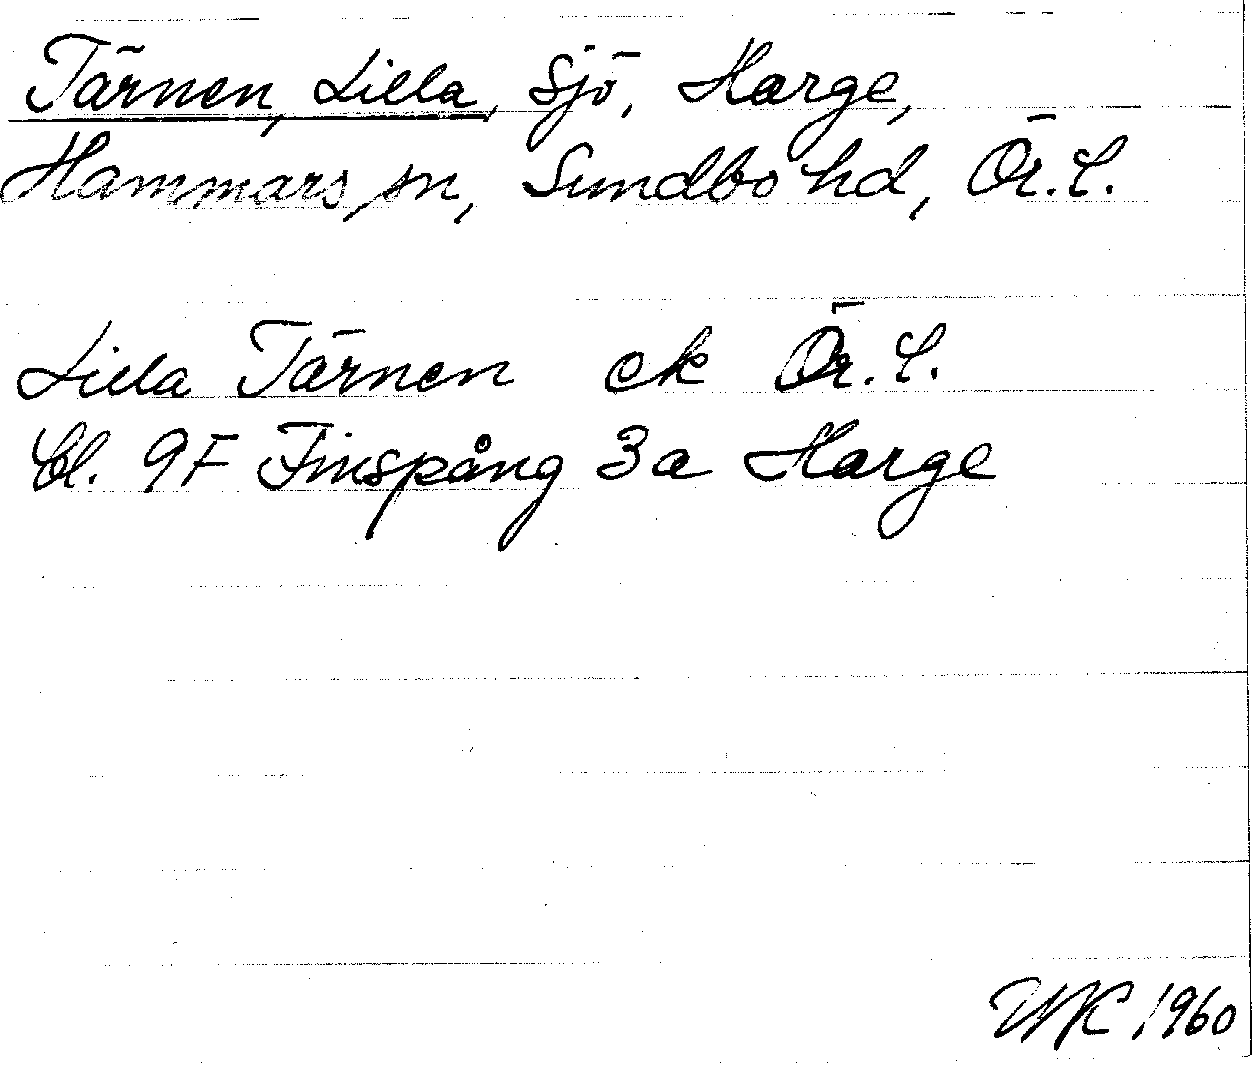 Tärnen, Lilla, Sjö, Harge,
Hammars sn, Sundbo hd, Ör. l.
Lilla Tärnen ek Ör. l.
Bl. 9F Finspång 3a Harge
WK 1960